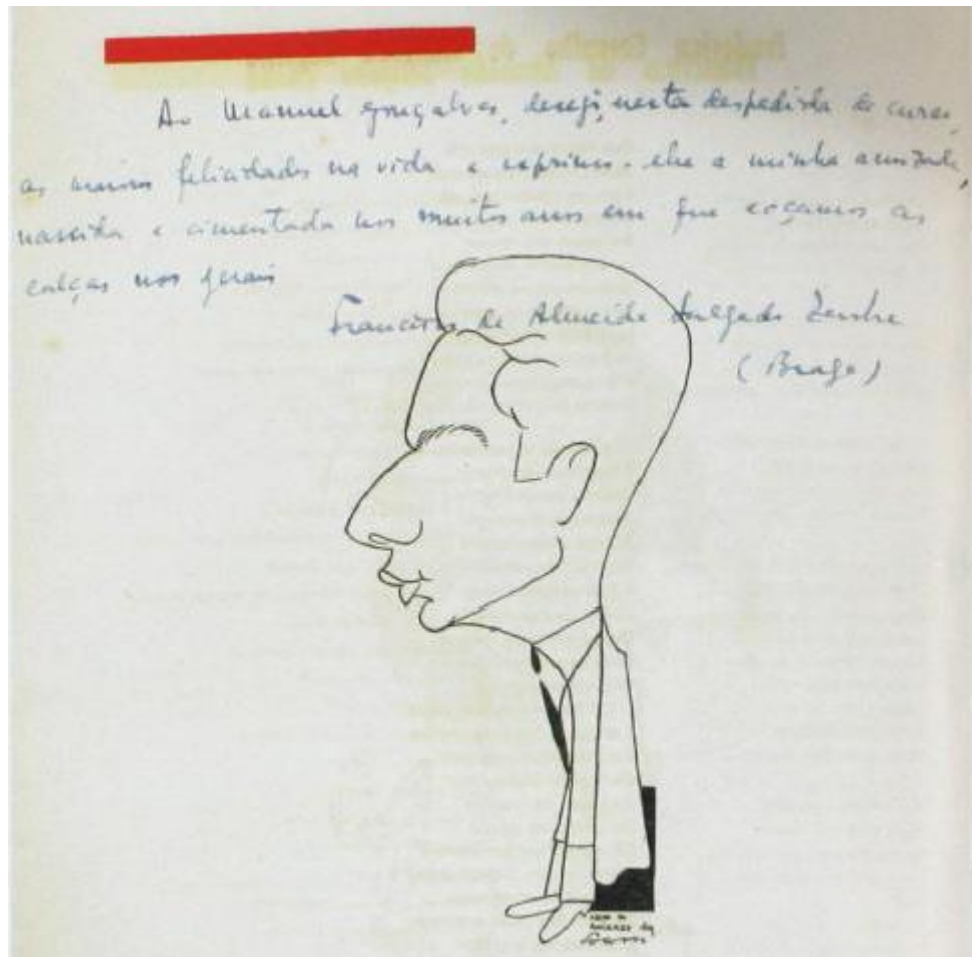 Ao Manuel Gonçalves, desejo, nesta despedida de curso,
as maiores felicidades na vida e exprimo-lhe a minha amizade,
nascida e cimentada nos muitos anos em que coçamos as
calças nos gerais
Francisco de Almeida Salgado Zenha
(Braga)